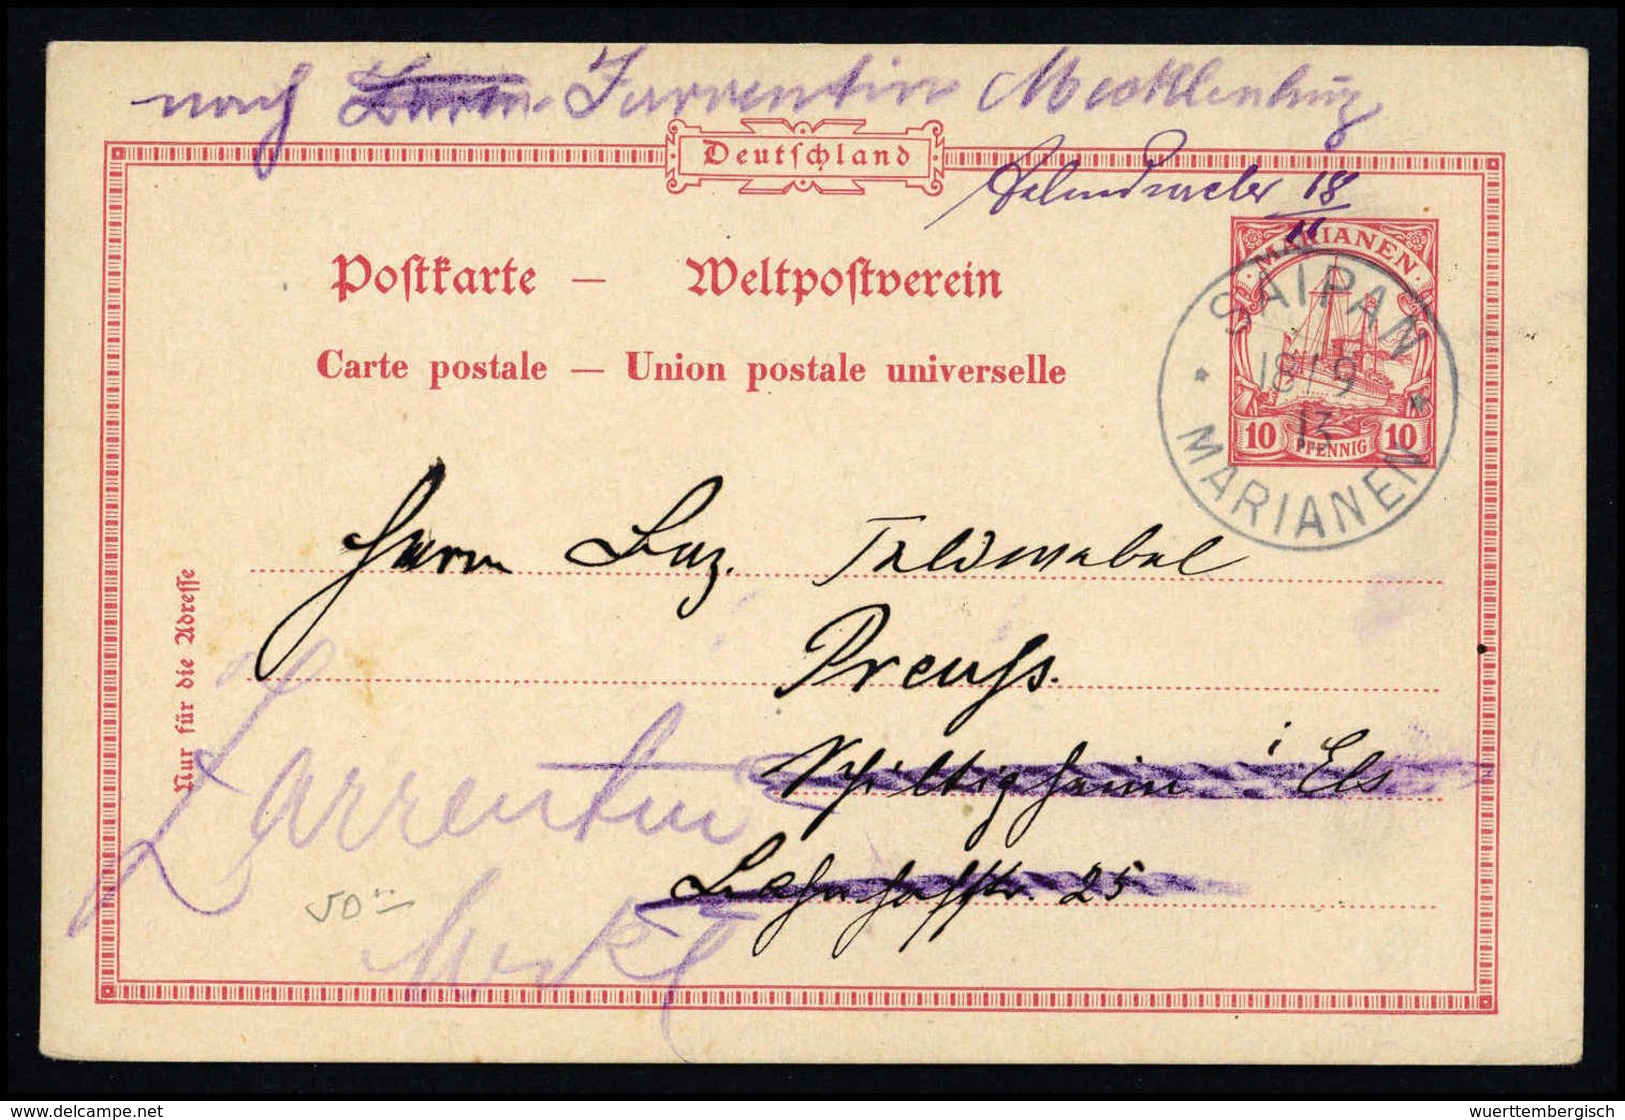 nach Zarrentin Mecklenburg
Deutschland
18/11
Postkarte — Weltpostverein
Carte postale — Union postale universelle
MARIANEN
10 PFENNIG 10
SAIPAN
18/9
13
MARIANEN
Nur für die Adresse
Herrn Laz. Feldwebel
Preuss.
Schiltigheim i Els
Bahnhofstr. 25
Zarrentin
Meckl
50
wuerttembergisch